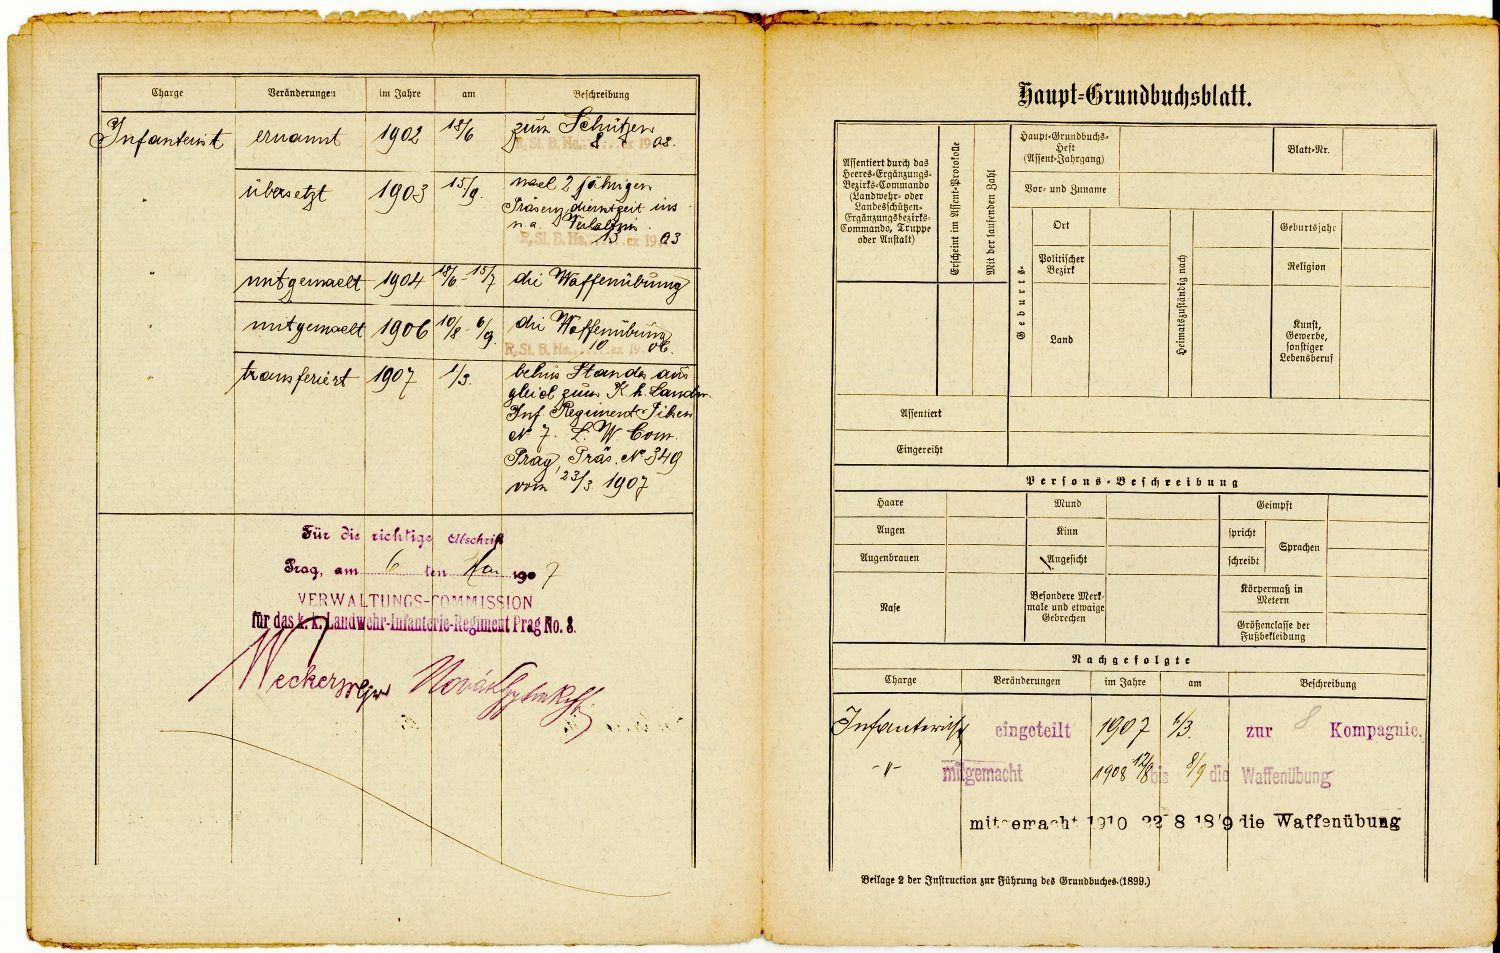 Charge Veränderungen im Jahre am Beschreibung
Infanterist ernannt 1902 18/6 zum Schützen
R. St. B. No. 8 ex 19 03.
übersetzt 1903 15/9. nach 2 jährigen
Präsenzdienstzeit ins
n. a.
R. St. B. No. 13 ex 19 03
" mitgemacht 1904 18/6 - 15/7 die Waffenübung
" mitgemacht 1906 10/8 - 6/9. die Waffenübung
R. St. B. No. 10 ex 19 06.
" transferiert 1907 1/3. behufs Standes aus
gleich zum K. k. Landw.
Inf. Regiment
No 7. L. W. Com.
Prag, Präs. No 349
vom 23/3 1907
Für die richtige Abschrift
Prag, am 6 ten Mai 1907
VERWALTUNGS-COMMISSION
für das k. k. Landwehr-Infanterie-Regiment Prag No. 8.
Haupt-Grundbuchsblatt.
Assentiert durch das
Heeres-Ergänzungs-
Bezirks-Commando
(Landwehr- oder
Landesschützen-
Ergänzungsbezirks-
Commando, Truppe
oder Anstalt)
Erscheint im Assent-Protokolle
Mit der laufenden Zahl
Haupt-Grundbuchs-
Heft
(Assent-Jahrgang)
Blatt-Nr.
Vor- und Zuname
Geburts-
Ort
Politischer
Bezirk
Land
Heimatszuständig nach
Geburtsjahr
Religion
Kunst,
Gewerbe,
sonstiger
Lebensberuf
Assentiert
Eingereiht
Persons-Beschreibung
Haare Mund Geimpft
Augen Kinn spricht Sprachen
Augenbrauen Angesicht schreibt
Nase
Besondere Merk-
male und etwaige
Gebrechen
Körpermaß in
Metern
Größenclasse der
Fußbekleidung
Nachgefolgte
Charge Veränderungen im Jahre am Beschreibung
Infanterist eingeteilt 1907 1/3. zur 8 Kompagnie.
-"- mitgemacht 1908 12/8 bis 8/9 die Waffenübung
mitgemacht 1910 22 8 18/9 die Waffenübung
Beilage 2 der Instruction zur Führung des Grundbuches. (1899.)